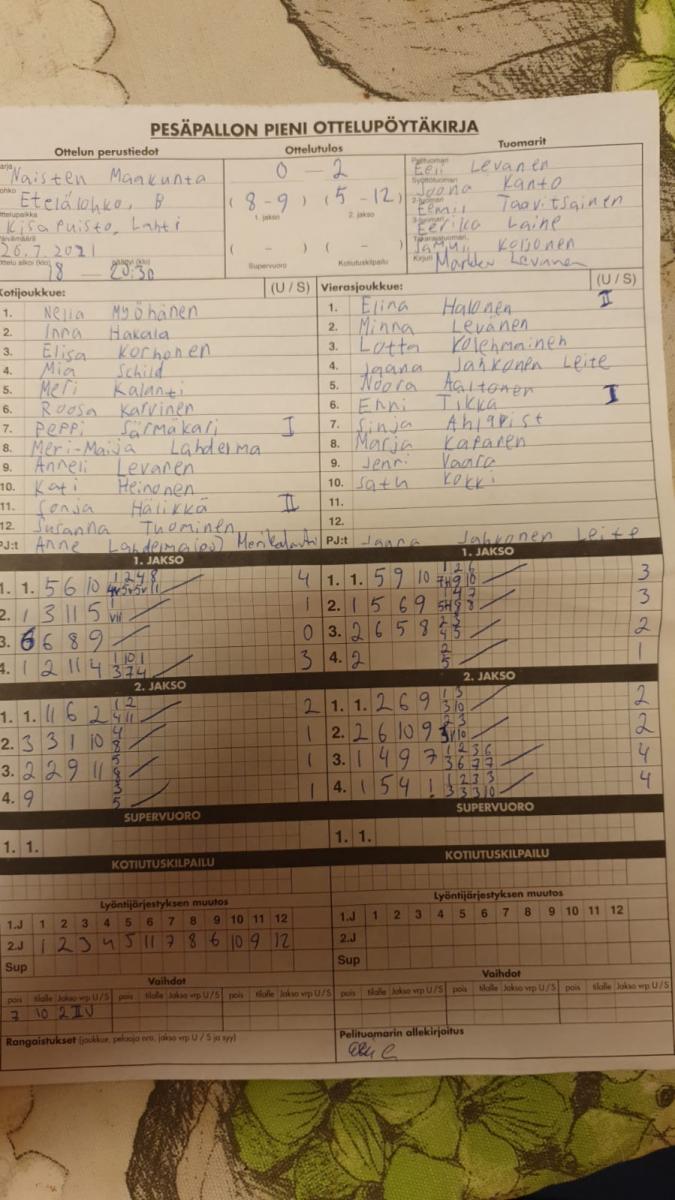 PESÄPALLON PIENI OTTELUPÖYTÄKIRJA
Ottelun perustiedot
Naisten Maakunta
Etelälohko, B
Kisapuisto, Lahti
26.7.2021
18 — 20:30
Ottelutulos
0 - 2
(8-9) (5-12)
1. jakso 2. jakso
( - ) ( - )
Supervuoro Kotiutuskilpailu
Tuomarit
Eeli Levänen
Joona Kanto
Eemil Taavitsainen
Eerika Laine
Samuli Korjonen
Levänen
Kotijoukkue: (U / S)
1. Nella Myöhänen
2. Inna Hakala
3. Elisa Korhonen
4. Mia Schild
5. Meri Kalanti
6. Roosa Karvinen
7. Peppi Särmäkari I
8. Meri-Maija Lahderma
9. Anneli Levanen
10. Kati Heinonen
11. Sonja Hälikkä II
12. Susanna Tuominen
PJ:t Anne
Vierasjoukkue: (U / S)
1. Elina Halonen II
2. Minna Levänen
3. Lotta Kolehmainen
4. Jaana Jahkonen Leite
5. Noora Aaltonen
6. Enni Tikka I
7. Sinja Ahlqvist
8. Marja Kaparen
9. Jenni Vaara
10. Satu Kokki
11.
12.
PJ:t Jaana Jahkonen Leite
1. JAKSO
1. 1. 5 6 10 4
2. 1 3 11 5 1
3. 6 6 8 9 0
4. 1 2 11 4 3
1. JAKSO
1. 1. 5 9 10 3
2. 1 5 6 9 3
3. 2 6 5 8 2
4. 2 1
2. JAKSO
1. 1. 11 6 2 2
2. 3 3 1 10 1
3. 2 2 9 11 1
4. 9 1
2. JAKSO
1. 1. 2 6 9 2
2. 2 6 10 9 2
3. 1 4 9 7 4
4. 1 5 4 ! 4
SUPERVUORO
1. 1.
SUPERVUORO
1. 1.
KOTIUTUSKILPAILU
KOTIUTUSKILPAILU
Lyöntijärjestyksen muutos
1.J 1 2 3 4 5 6 7 8 9 10 11 12
2.J 1 2 3 4 5 11 7 8 6 10 9 12
Sup
Lyöntijärjestyksen muutos
1.J 1 2 3 4 5 6 7 8 9 10 11 12
2.J
Sup
Vaihdot
pois tilalle Jakso vrp U / S pois tilalle Jakso vrp U / S pois tilalle Jakso vrp U / S
7 10 2 II U
Vaihdot
pois tilalle Jakso vrp U / S pois tilalle Jakso vrp U / S pois tilalle Jakso vrp U / S
Rangaistukset (joukkue, pelaaja nro, jakso vrp U / S ja syy)
Pelituomarin allekirjoitus